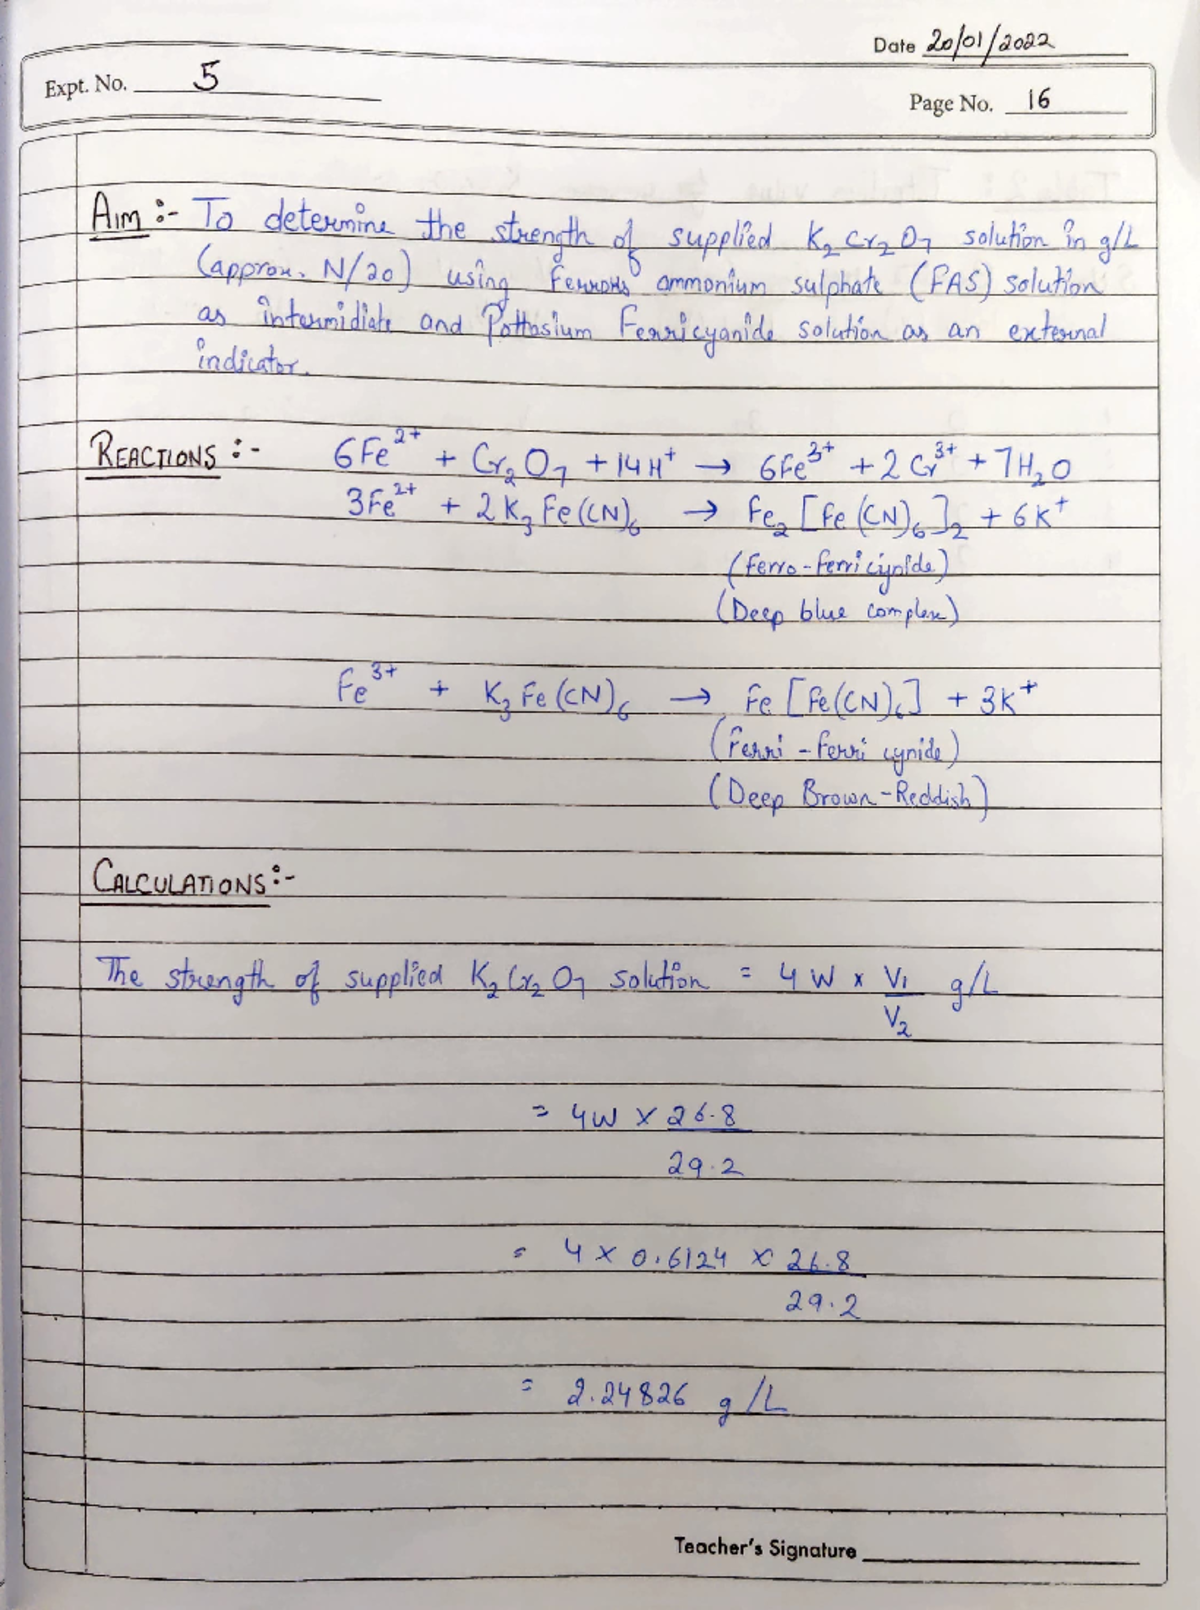 Date 20/01/2022
Expt. No. 5
Page No. 16
AIM :- To determine the strength of supplied K₂Cr₂O₇ solution in g/L
(approx. N/20) using Ferrous ammonium sulphate (FAS) solution
as intermidiate and Pottasium Ferricyanide solution as an external
indicator.
REACTIONS :- 6Fe²⁺ + Cr₂O₇ + 14H⁺ → 6Fe³⁺ + 2Cr³⁺ + 7H₂O
3Fe²⁺ + 2K₃Fe(CN)₆ → Fe₂[Fe(CN)₆]₂ + 6K⁺
(Ferro-ferricynide)
(Deep blue complex)
Fe³⁺ + K₃Fe(CN)₆ → Fe[Fe(CN)₆] + 3K⁺
(Ferri-ferri cynide)
(Deep Brown-Reddish)
CALCULATIONS :-
The strength of supplied K₂Cr₂O₇ solution = 4W x V₁ g/L
V₂
= 4W x 26.8
29.2
= 4 x 0.6124 x 26.8
29.2
= 2.24826 g/L
Teacher's Signature